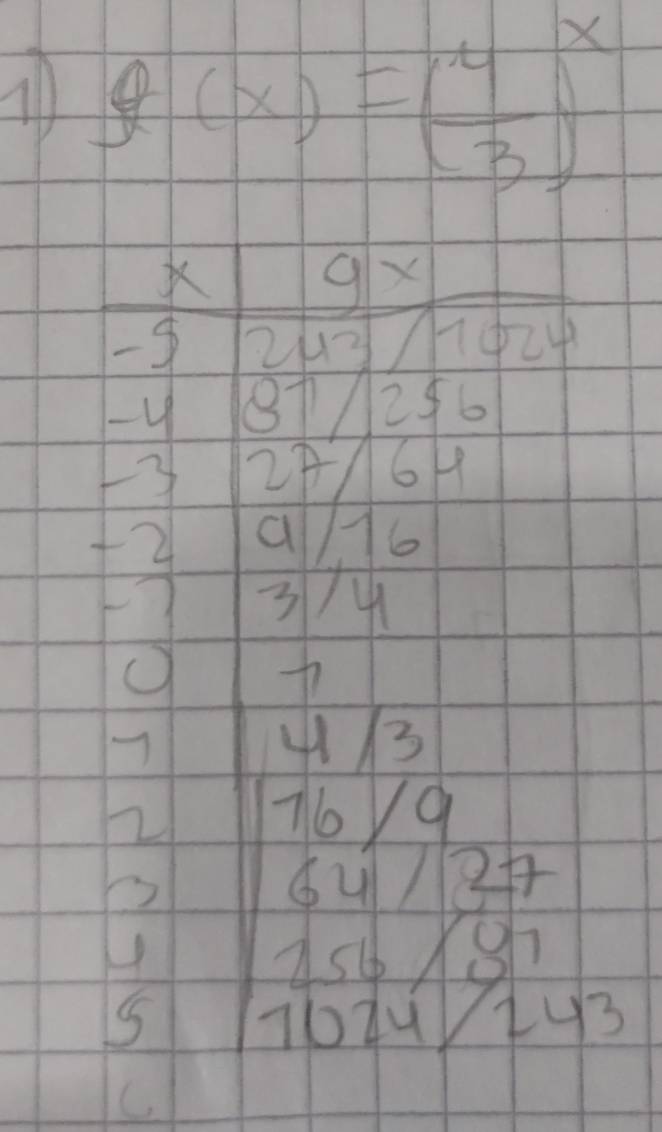 1) g(x) = (4/3)^x
x | gx
-5 | 243/1024
-4 | 81/256
-3 | 27/64
-2 | 9/16
-1 | 3/4
0 | 1
1 | 4/3
2 | 16/9
3 | 64/27
4 | 256/81
5 | 1024/243